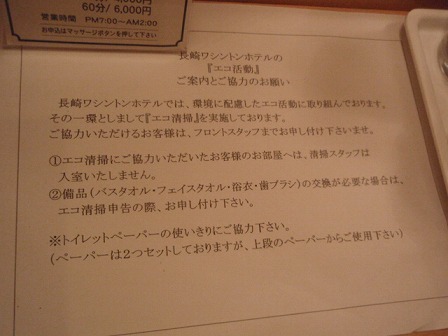 60分/ 6,000円
営業時間 PM7:00～AM2:00
お申込はマッサージボタンを押して下さい
長崎ワシントンホテルの
『エコ活動』
ご案内とご協力のお願い
長崎ワシントンホテルでは、環境に配慮したエコ活動に取り組んでおります。
その一環としまして『エコ清掃』を実施しております。
ご協力いただけるお客様は、フロントスタッフまでお申し付け下さいませ。
①エコ清掃にご協力いただいたお客様のお部屋へは、清掃スタッフは
入室いたしません。
②備品（バスタオル・フェイスタオル・浴衣・歯ブラシ）の交換が必要な場合は、
エコ清掃申告の際、お申し付け下さい。
※トイレットペーパーの使いきりにご協力下さい。
(ペーパーは２つセットしておりますが、上段のペーパーからご使用下さい)